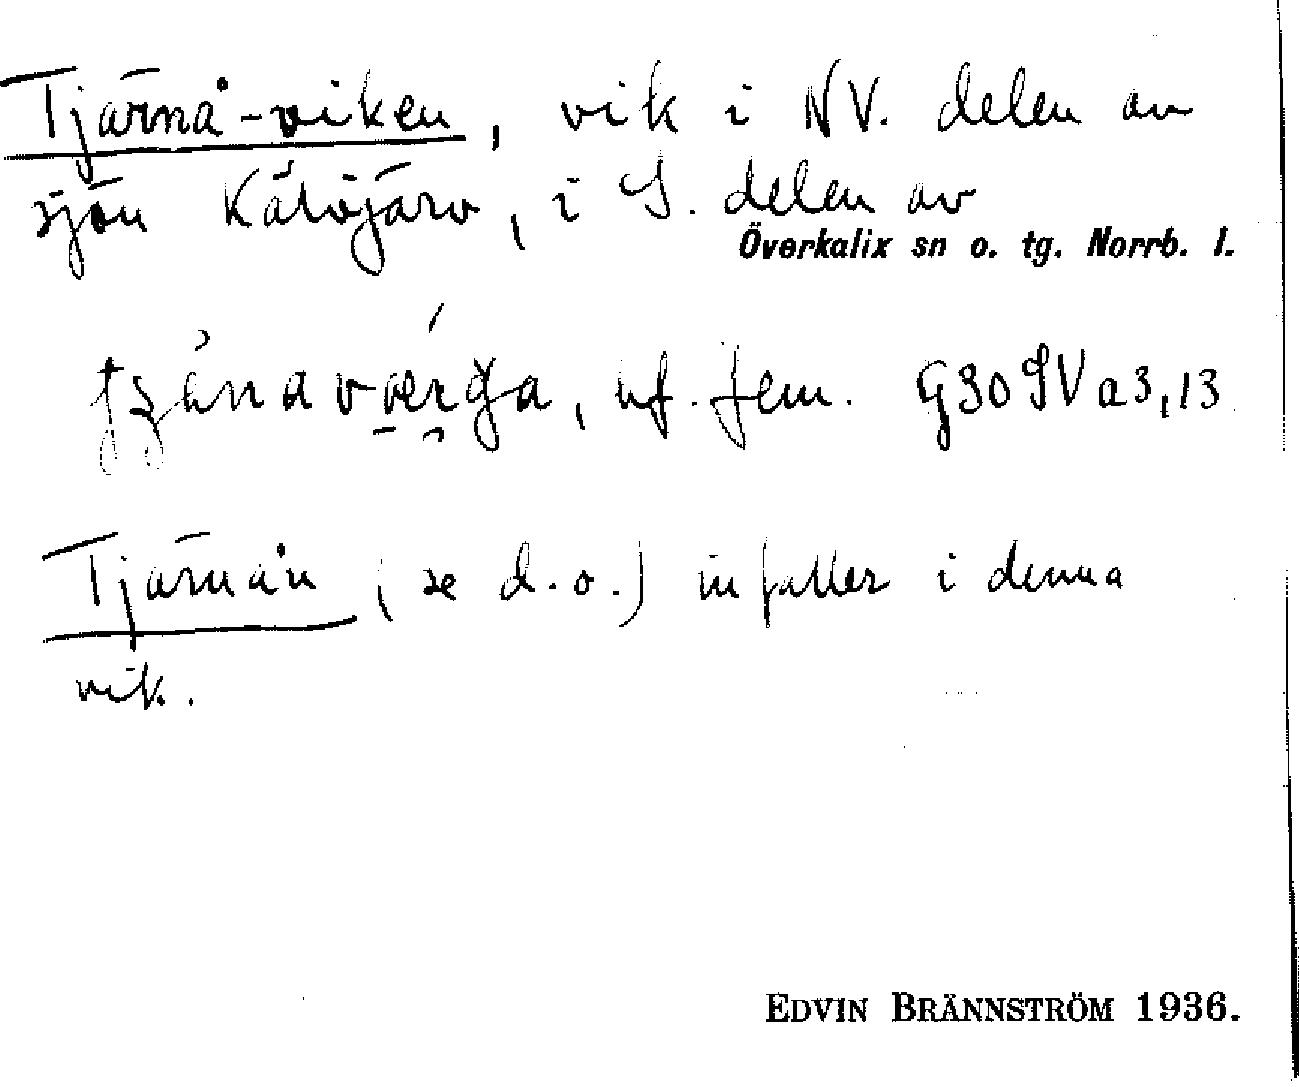 Tjärnå-viken, vik i NV. delen av
sjön Kälvjärv, i S. delen av
Överkalix sn o. tg. Norrb. l.
uf. fem. G30 SV a3,13
Tjärnån (se d.o.) infaller i denna
vik.
EDVIN BRÄNNSTRÖM 1936.